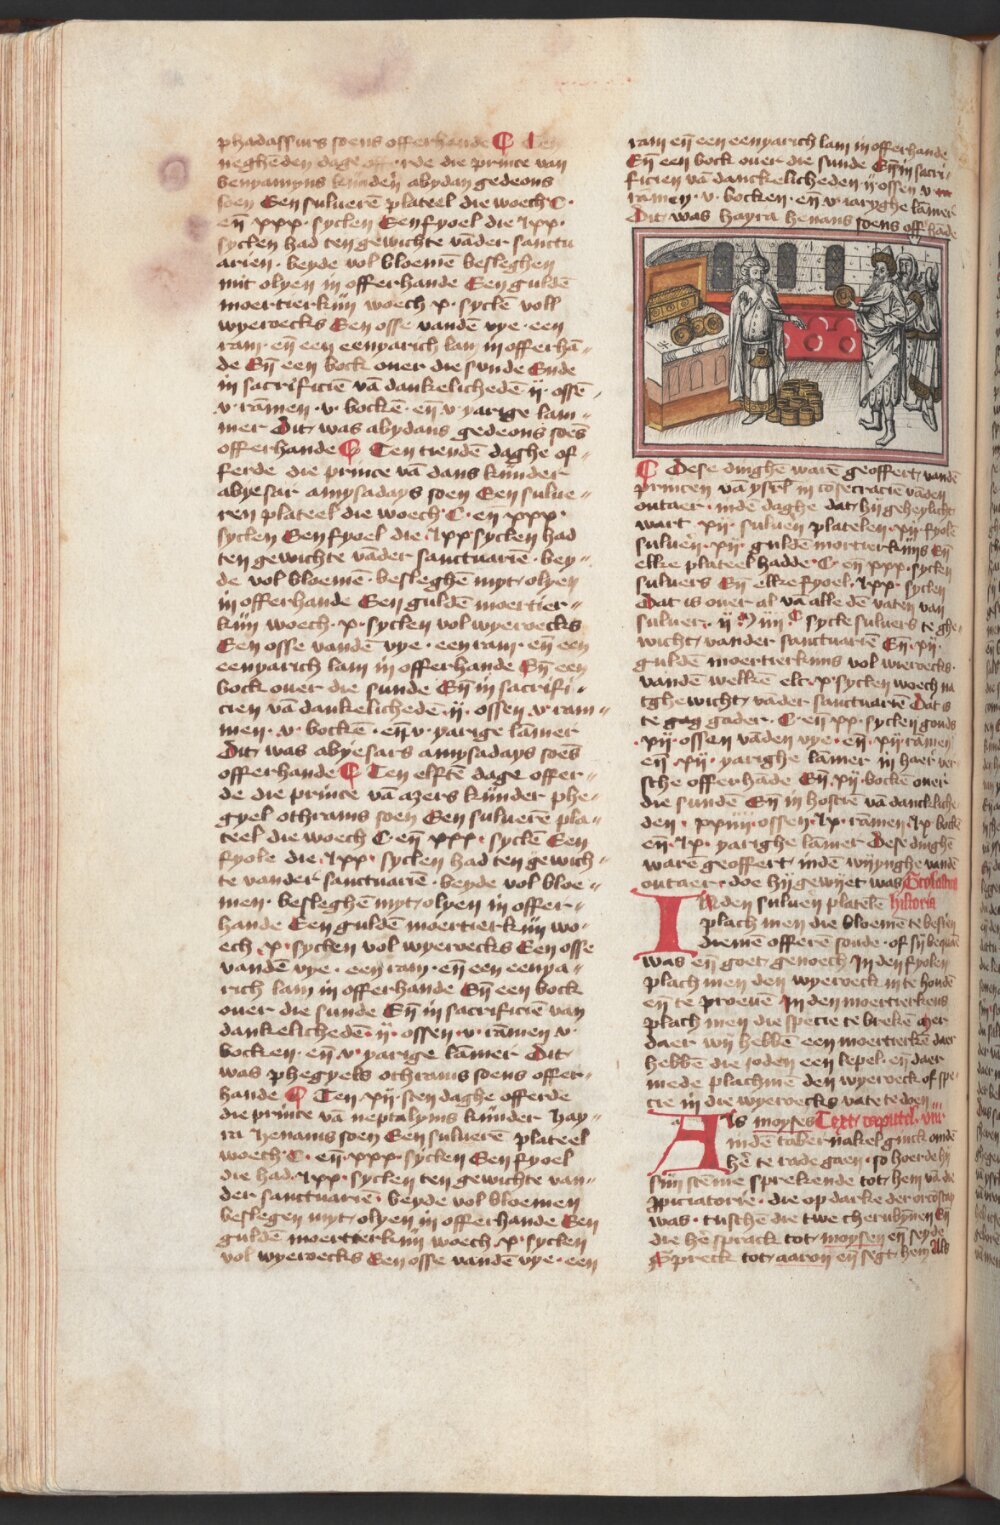 phadassurs soens offerhande ¶ Ten
neghenden dage offerde die prince van
benyamyns kinderē abydan gedeons
soen Een suluerē plateel die woech C·
eñ xxx· syclen Een fyoel die lxx·
syclen had ten gewichte vāder sanctu
arien· beyde vol bloemē besleghen
mit olyen in offerhande Een guldē
moertierkijn woech x· syclē voll
wyeroecks Een osse vandē vye· een
ram· eñ een eenyarich lam in offerhā-
de Eñ een bock ouer die sunde Ende
in sacrificiē vā dankelichedē ij· ossē
v· rāmen· v· bockē· eñ v· yarige lam-
mer Dit was abydans gedeons soēs
offerhande ¶ Ten tiendē daghe of-
ferde die prince vā dans kinder
abyesar amysadays soen Een sulue-
ren plateel die woech C· eñ xxx·
syclen Een fyoel die lxx syclen had
ten gewichte vāder sanctuariē· bey-
de vol bloemē· besleghē myt olyen
in offerhande Een guldē moertier-
kijn woech· x· syclen vol wyeroecks
Een osse vandē vye· een ram· eñ een
eenyarich lam in offerhande Eñ een
bock ouer die sunde Eñ in sacrifi-
cien vā dankelichedē· ij· ossen· v· ram-
men· v· bockē· eñ v· yarige lāmer
Dit was abyesars amysadays soēs
offerhande ¶ Ten elftē dage offer-
de die prince vā azers kinder phe-
gyel othrams soen Een suluerē pla-
teel die woech C· eñ xxx· syclē Een
fyole die· lxx· syclen had ten gewich-
te vander sanctuariē· beyde vol bloe-
men· besleghē myt olyen in offer-
hande Een guldē moertierkijn wo-
ech x· syclen vol wyeroecks Een osse
vandē vye· een ram· eñ een eenya-
rich lam in offerhande Eñ een bock
ouer die sunde Eñ in sacrificiē van
dankelichedē· ij· ossen· v· rāmen v·
bocken· eñ v· yarige lāmer Dit
was phegyels othrams soens offer-
hande ¶ Ten xij· sten daghe offerde
die prince vā neptalyms kinder hay-
ra henams soen Een suluerē plateel
woech C· eñ xxx· syclen Een fyoel
die had· lxx· syclen ten gewichte van-
der sanctuariē· beyde vol bloemen
beslegen myt olyen in offerhande Een
guldē moertierkijn woech x· syclen
vol wyeroecks Een osse vandē vye· een
ram eñ een eenyarich lam in offerhande
Eñ een bock ouer die sunde Eñ in sacri-
ficien vā danckelicheden ij· ossen v·
ramen· v· bocken· eñ v· iaryghe lāmer
Dit was hayra henans soens offhāde
¶ Dese dinghē warē geoffert vandē
princen vā ysrl in cōsecracie vāden
outaer· indē daghe dat hij geheylicht
wart xij· suluerē platelen· xij· fyolē
suluerē· xij· guldē mortierkijns Eñ
elke plateel hadde· C· eñ xxx· syclen
suluers Eñ elke fyoel· lxx· syclen
Dat is ouer al vā alle dē vaten van
suluer· ij M iiij C sycle suluers te ghe-
wicht vander sanctuariē Eñ· xij·
guldē moertierkins vol wieroecks·
vandē welkē elc· x· syclen woech na
tghewicht vāder sanctuariē Dat is
te gader· C· eñ xx· syclen gouds
xij· ossen vāden vye· eñ· xij· ramen
eñ· xij· yarighe lāmer in haer ver-
sche offerhāde Eñ xij· bockē ouer
die sundē Eñ in hostiē vā danckliche
den· xxiiij· ossen· lx· rāmen· lx· bockē
eñ· lx· yarighe lāmer Dese dinghē
warē geoffert indē wijynghe vandē
outaer· doe hij gewijet was Scolastica
IN den suluen platelē historia
plach men die bloemē te besien
diemē offerē soude· of sij bequā
was eñ goet genoech In den fyolen
plach men den wyeroeck in te houdē
eñ te proeuē In den moertierkens
plach men die specie te brekē Mer
daer wij hebbē een moertierkē daer
hebbē die ioden een lepel· eñ daer
mede plachmē den wyeroeck of spe-
cie in die wyeroecks vate te doen
ALs moyses Text capittel· viij
indē tabernakel ginck omdē
hē te rade gaen· so hoerde hij
sijn stēme sprekende tot hem vā die
Ppiciatorie· die op darke der orcōscap
was· tuschē die twe cherubynen Eñ
die hē sprack tot moysen eñ seyde
Spreck tot aaron eñ segt hem Als